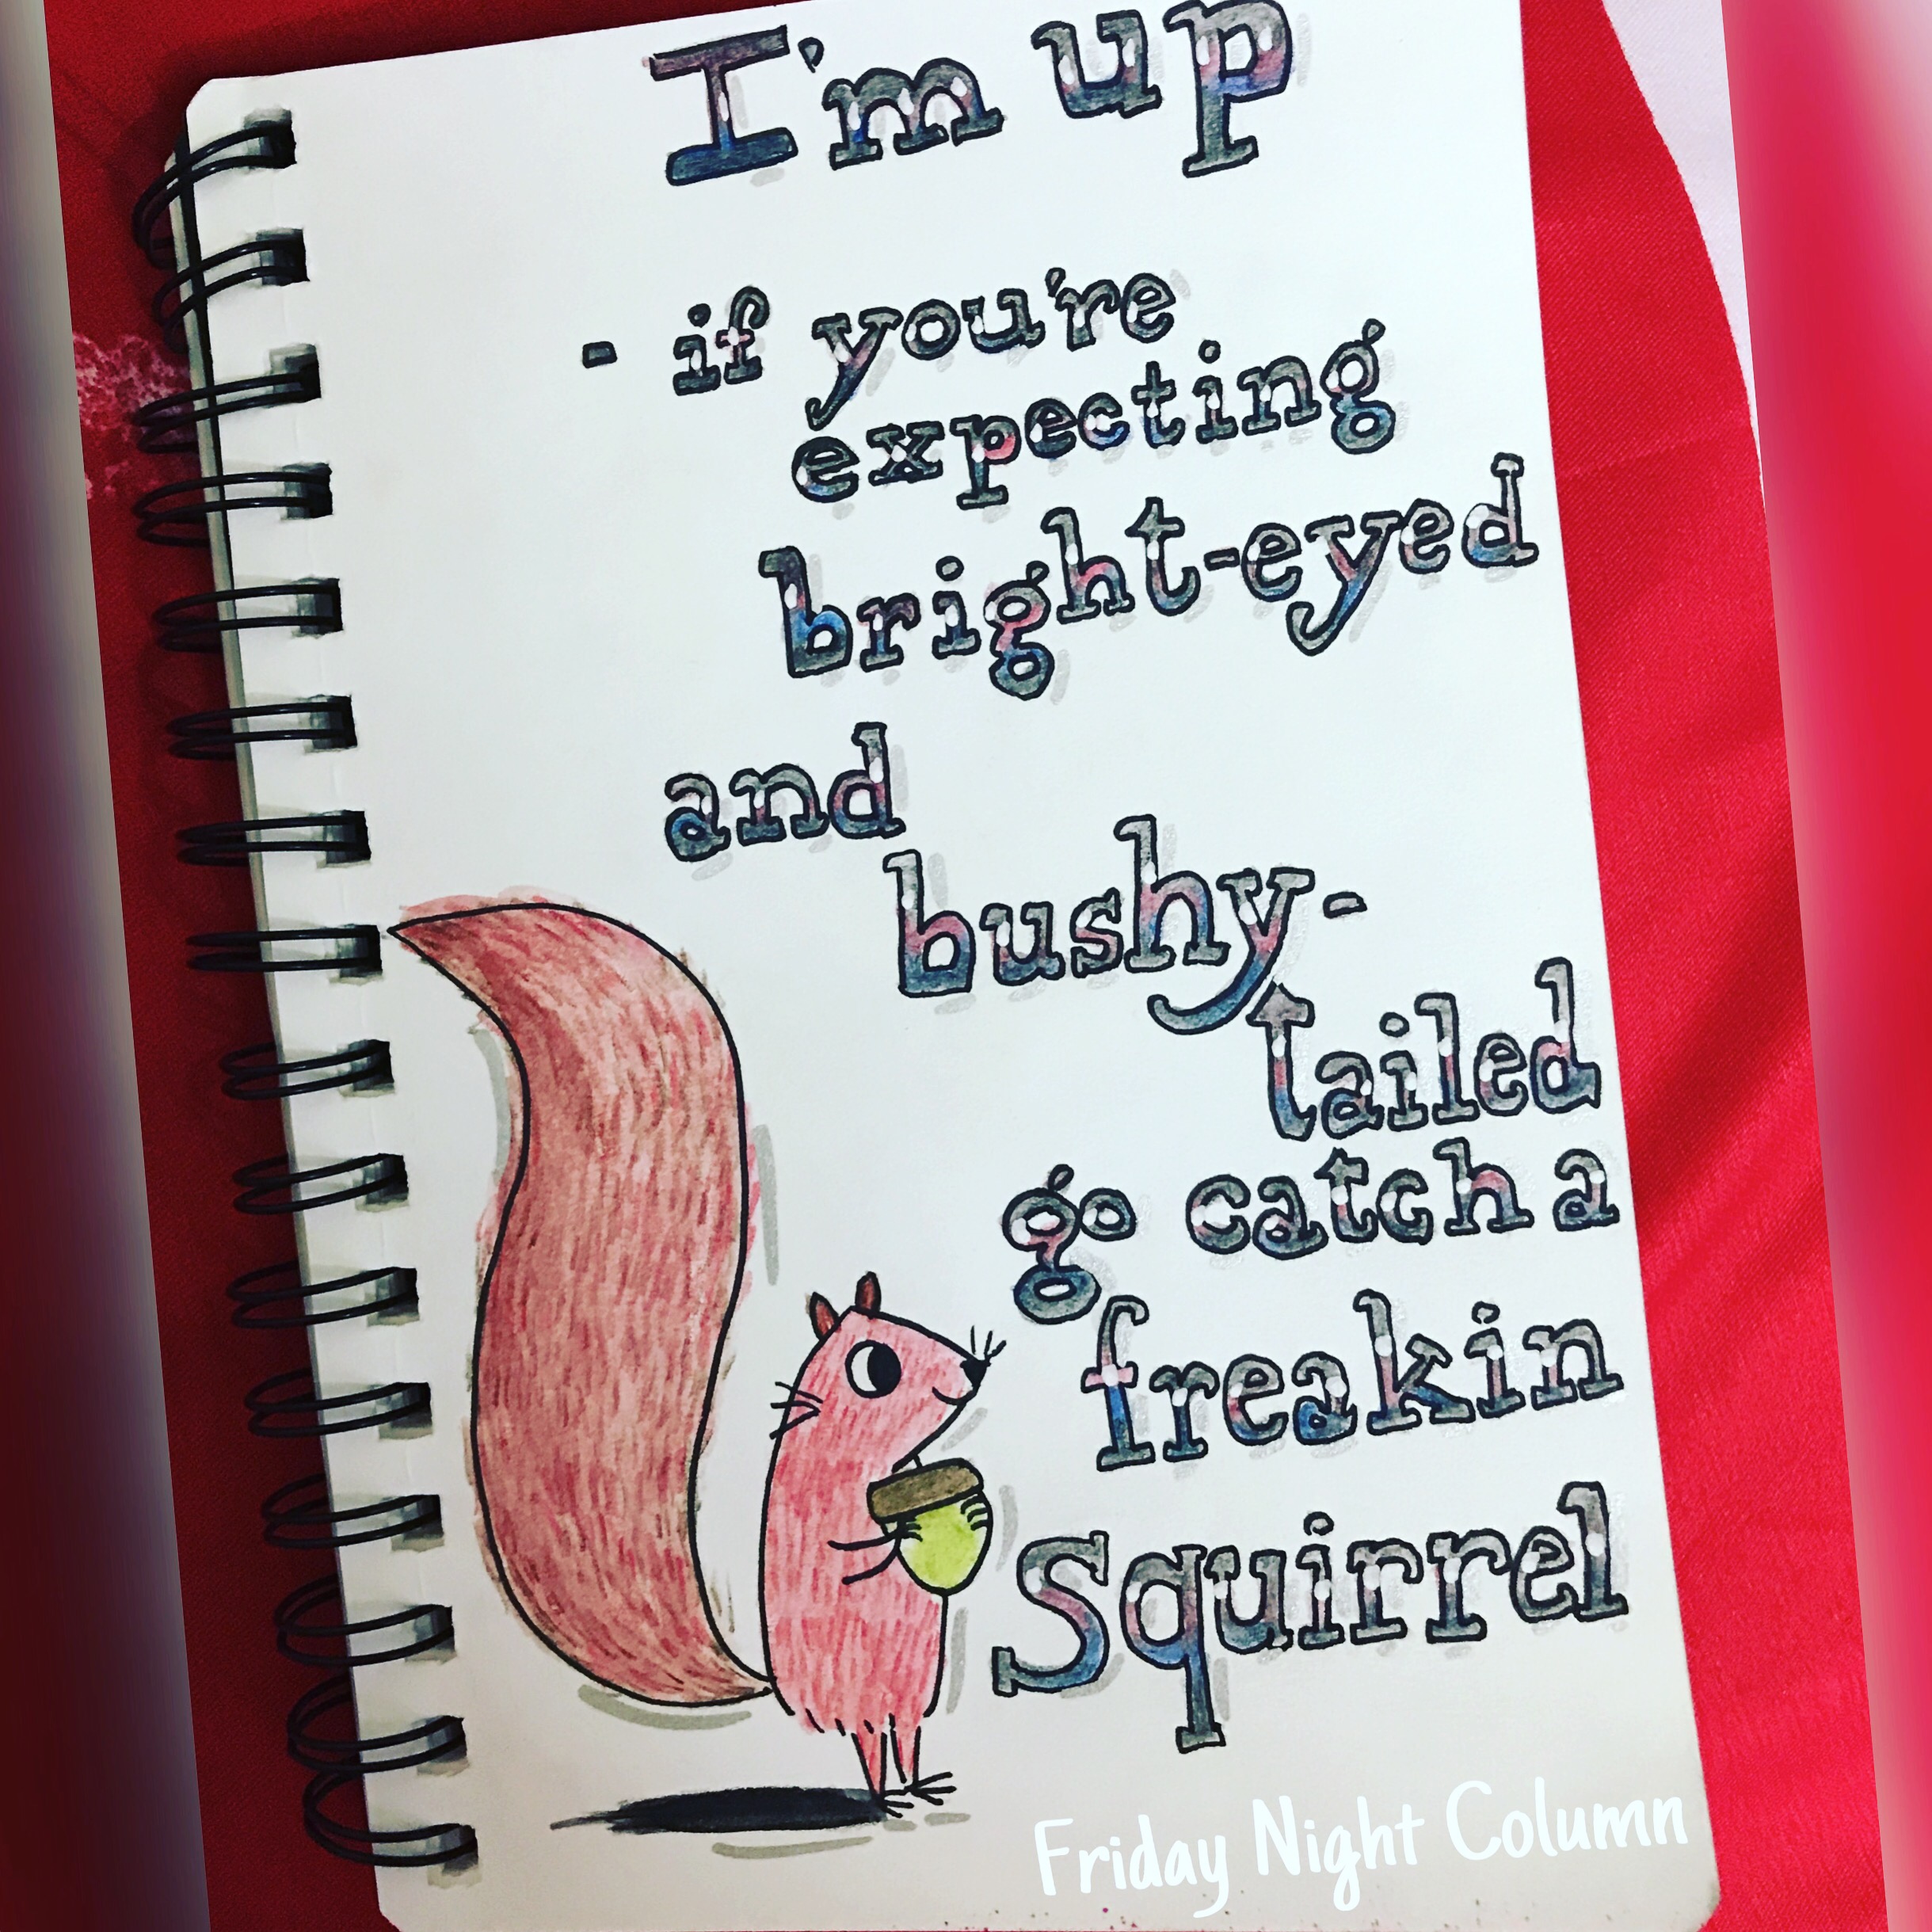 I'm up
- if you're
expecting
bright-eyed
and
bushy-
tailed
go catch a
freakin
Squirrel
Friday Night Column